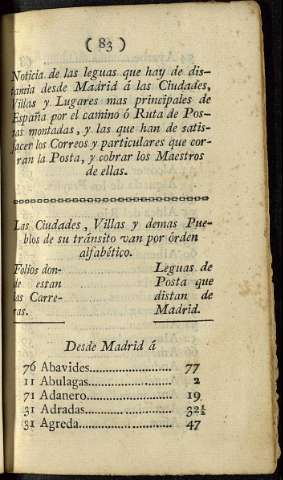 ( 83 )
Noticia de las leguas que hay de dis-
tancia desde Madrid á las Ciudades,
Villas y Lugares mas principales de
España por el camino ó Ruta de Pos-
tas montadas, y las que han de satis-
facer los Correos y particulares que cor-
ran la Posta, y cobrar los Maestros
de ellas.
Las Ciudades, Villas y demas Pue-
blos de su tránsito van por órden
alfabético.
Folios don-
de estan
las Carre-
ras.
Leguas de
Posta que
distan de
Madrid.
Desde Madrid á
76 Abavides........................ 77
11 Abulagas........................ 2
71 Adanero........................ 19
31 Adradas........................ 32½
31 Agreda........................ 47